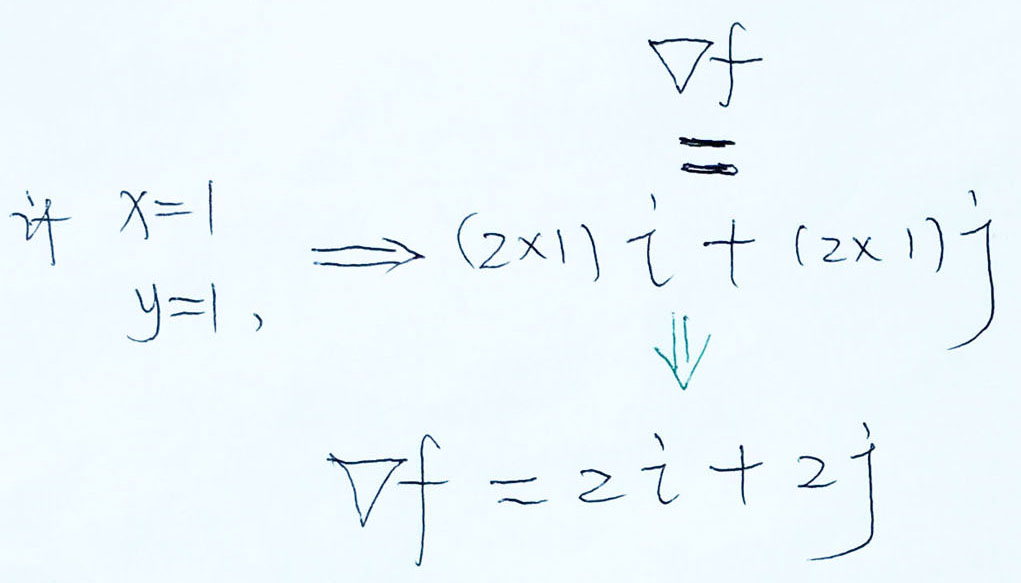 ∇f
=
x=1
y=1,
⟹ (2×1) i + (2×1) j
⇓
∇f = 2i + 2j